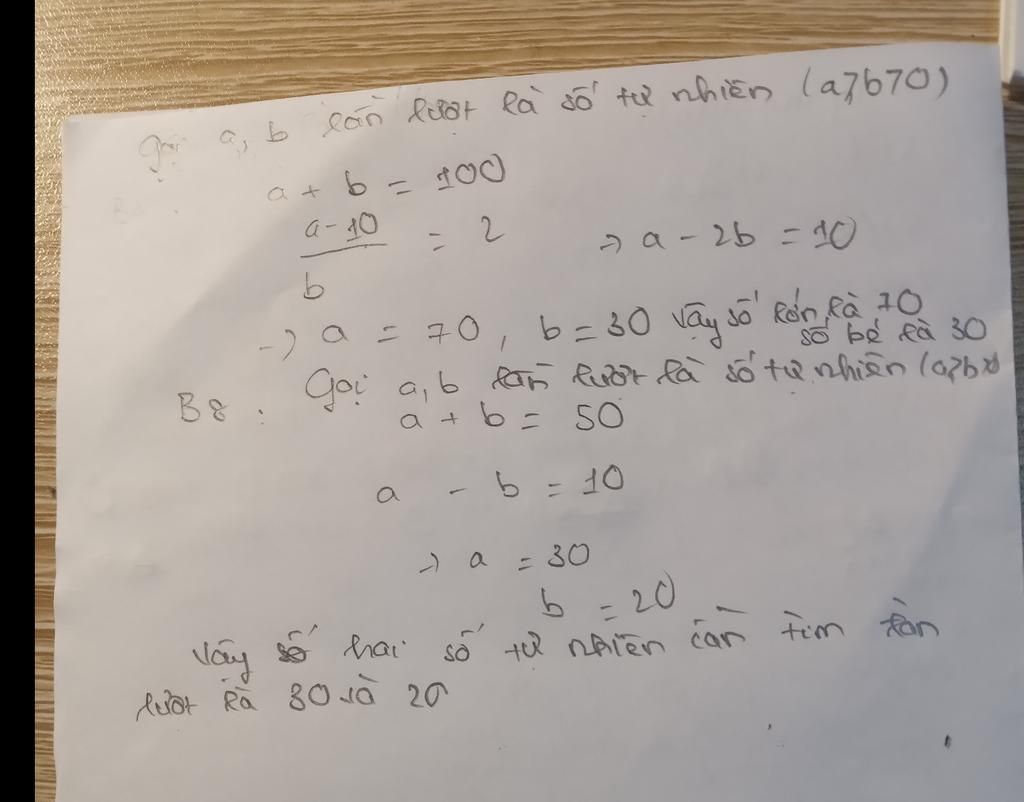 Gọi a, b lần lượt là số tự nhiên (a>b>0)
a + b = 100
a-10 / b = 2 → a - 2b = 10
→ a = 70, b = 30 vậy số lớn là 70
số bé là 30
B8 : Gọi a, b lần lượt là số tự nhiên (a>b>0)
a + b = 50
a - b = 10
→ a = 30
b = 20
Vậy số hai số tự nhiên cần tìm lần
lượt là 30 và 20